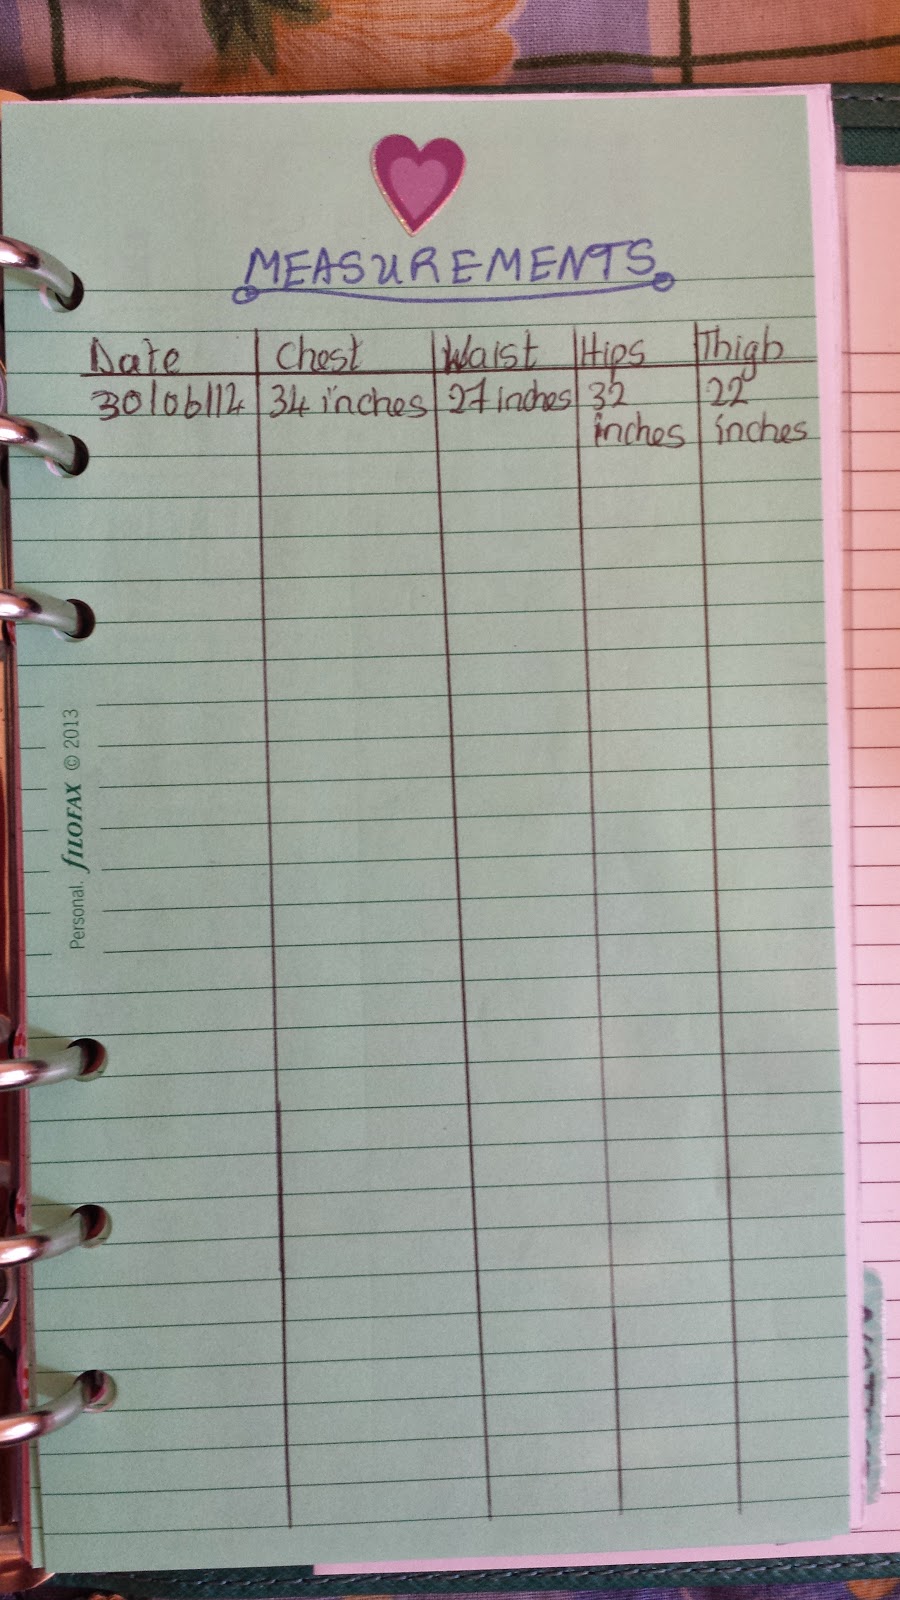 MEASUREMENTS
Date Chest Waist Hips Thigh
30/06/14 34 inches 27 inches 32 inches 22 inches
Personal. fILOFAX © 2013